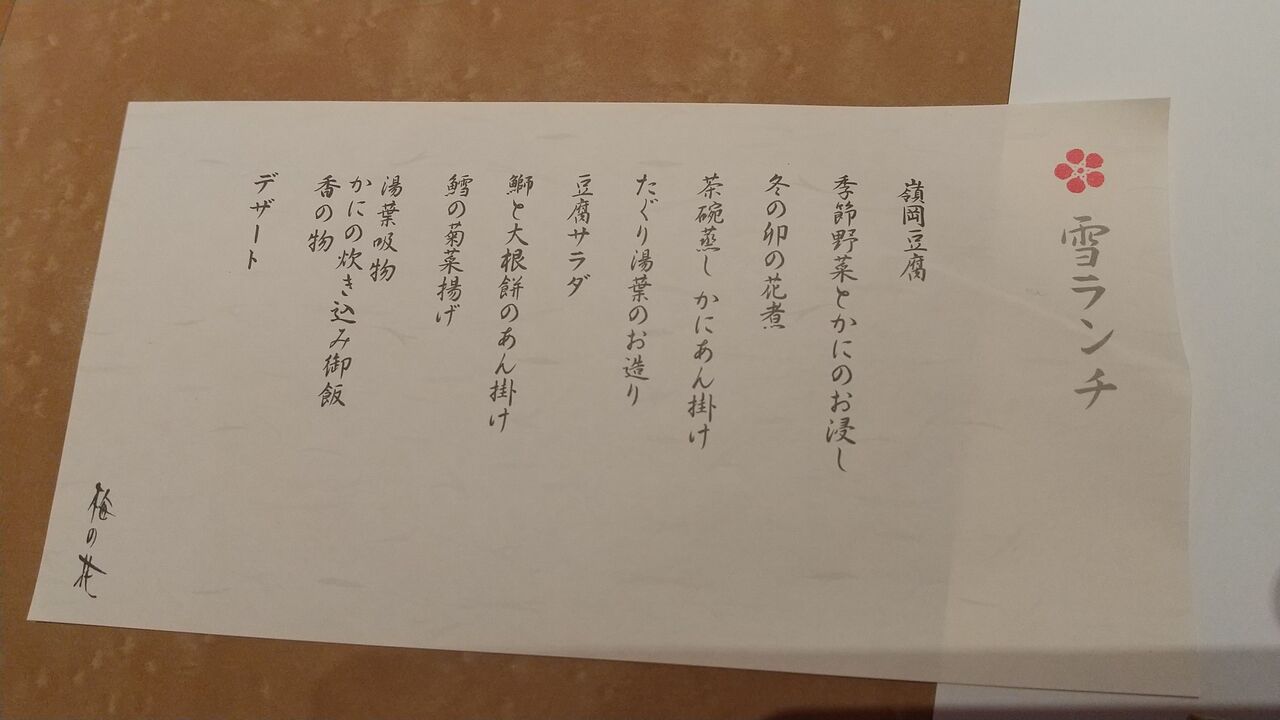 雪ランチ
嶺岡豆腐
季節野菜とかにのお浸し
冬の卯の花煮
茶碗蒸し かにあん掛け
たぐり湯葉のお造り
豆腐サラダ
鰤と大根餅のあん掛け
鱈の菊菜揚げ
湯葉吸物
かにの炊き込み御飯
香の物
デザート
梅の花